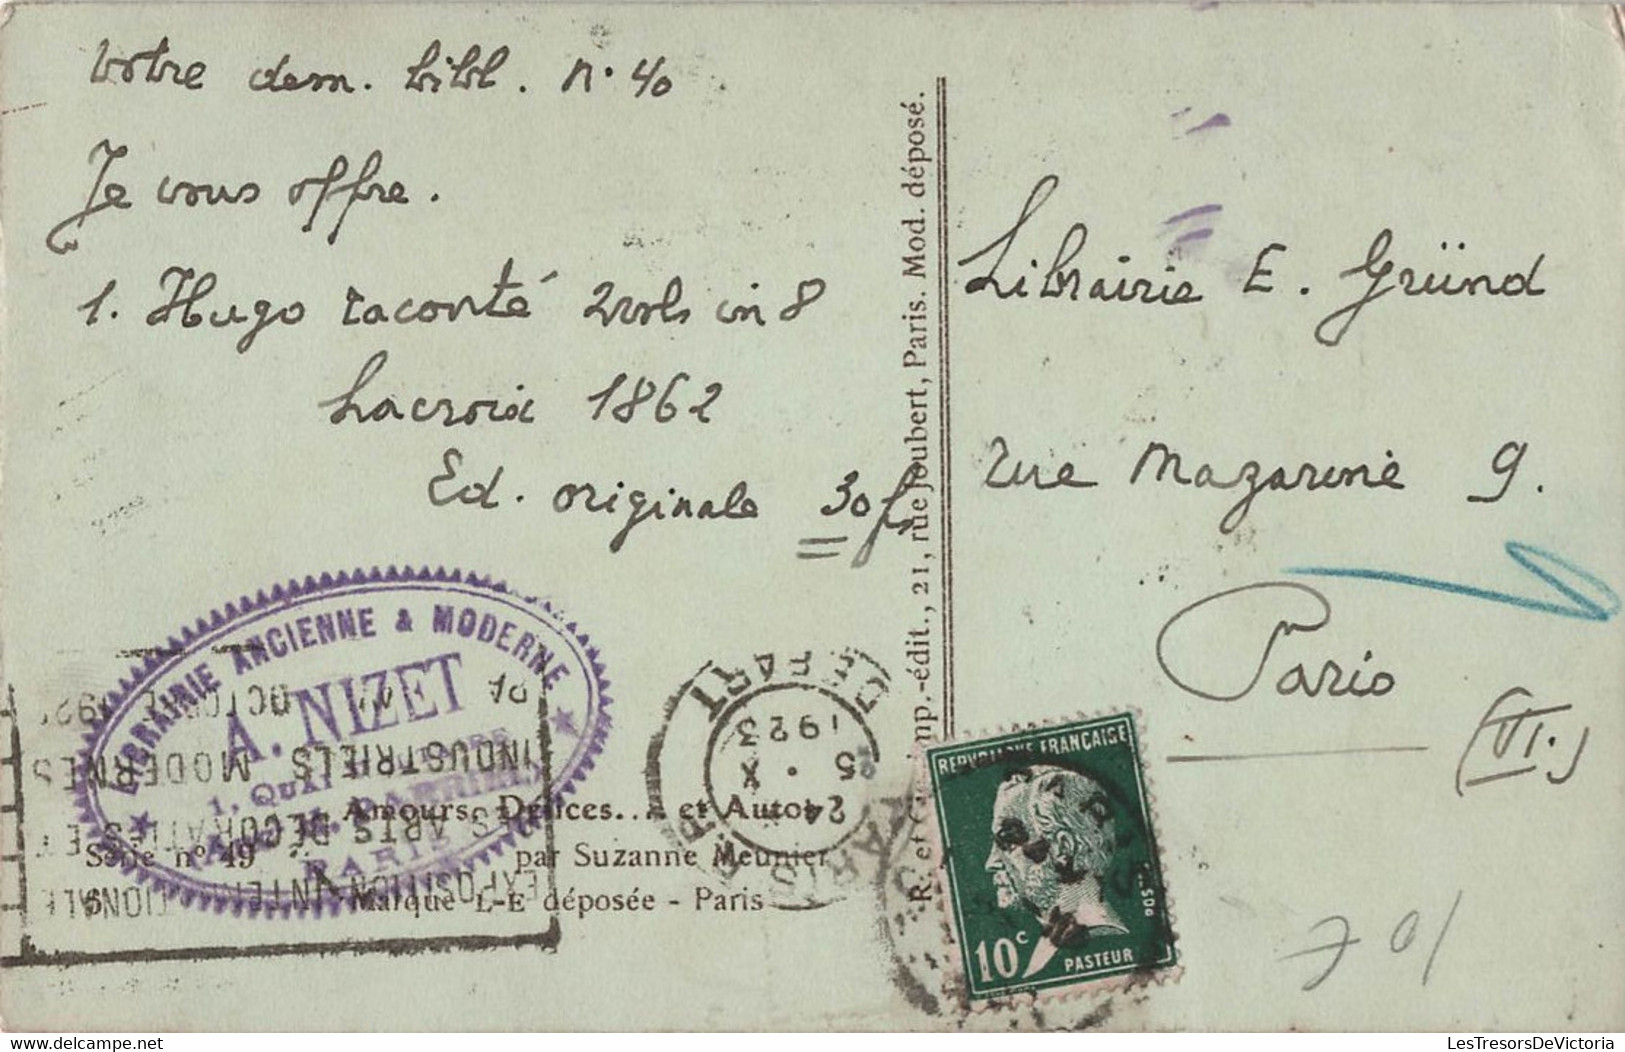 votre dem. bibl. n. 40
Je vous offre.
1. Hugo raconté 2 vols in 8
Lacroix 1862
Ed. originale 30 f
LIBRAIRIE ANCIENNE & MODERNE
A. NIZET
1, QUAI
PARIS
PA OCTOBRE
INDUSTRIELS MODERNES
ARTS DÉCORATIFS ET
EXPOSITION INTERNATIONALE
DÉPART
5 X
1923
Amours, Délices... et Autos
Série n° 49
par Suzanne Meunier
Marque L-E déposée - Paris
imp.-édit., 21, rue Joubert, Paris. Mod. déposé.
Librairie E. Gründ
rue Mazarine 9.
Paris
(VI.)
REPUBLIQUE FRANÇAISE
10c
PASTEUR
PARIS
LesTresorsDeVictoria
delcampe.net
LesTresorsDeVictoria